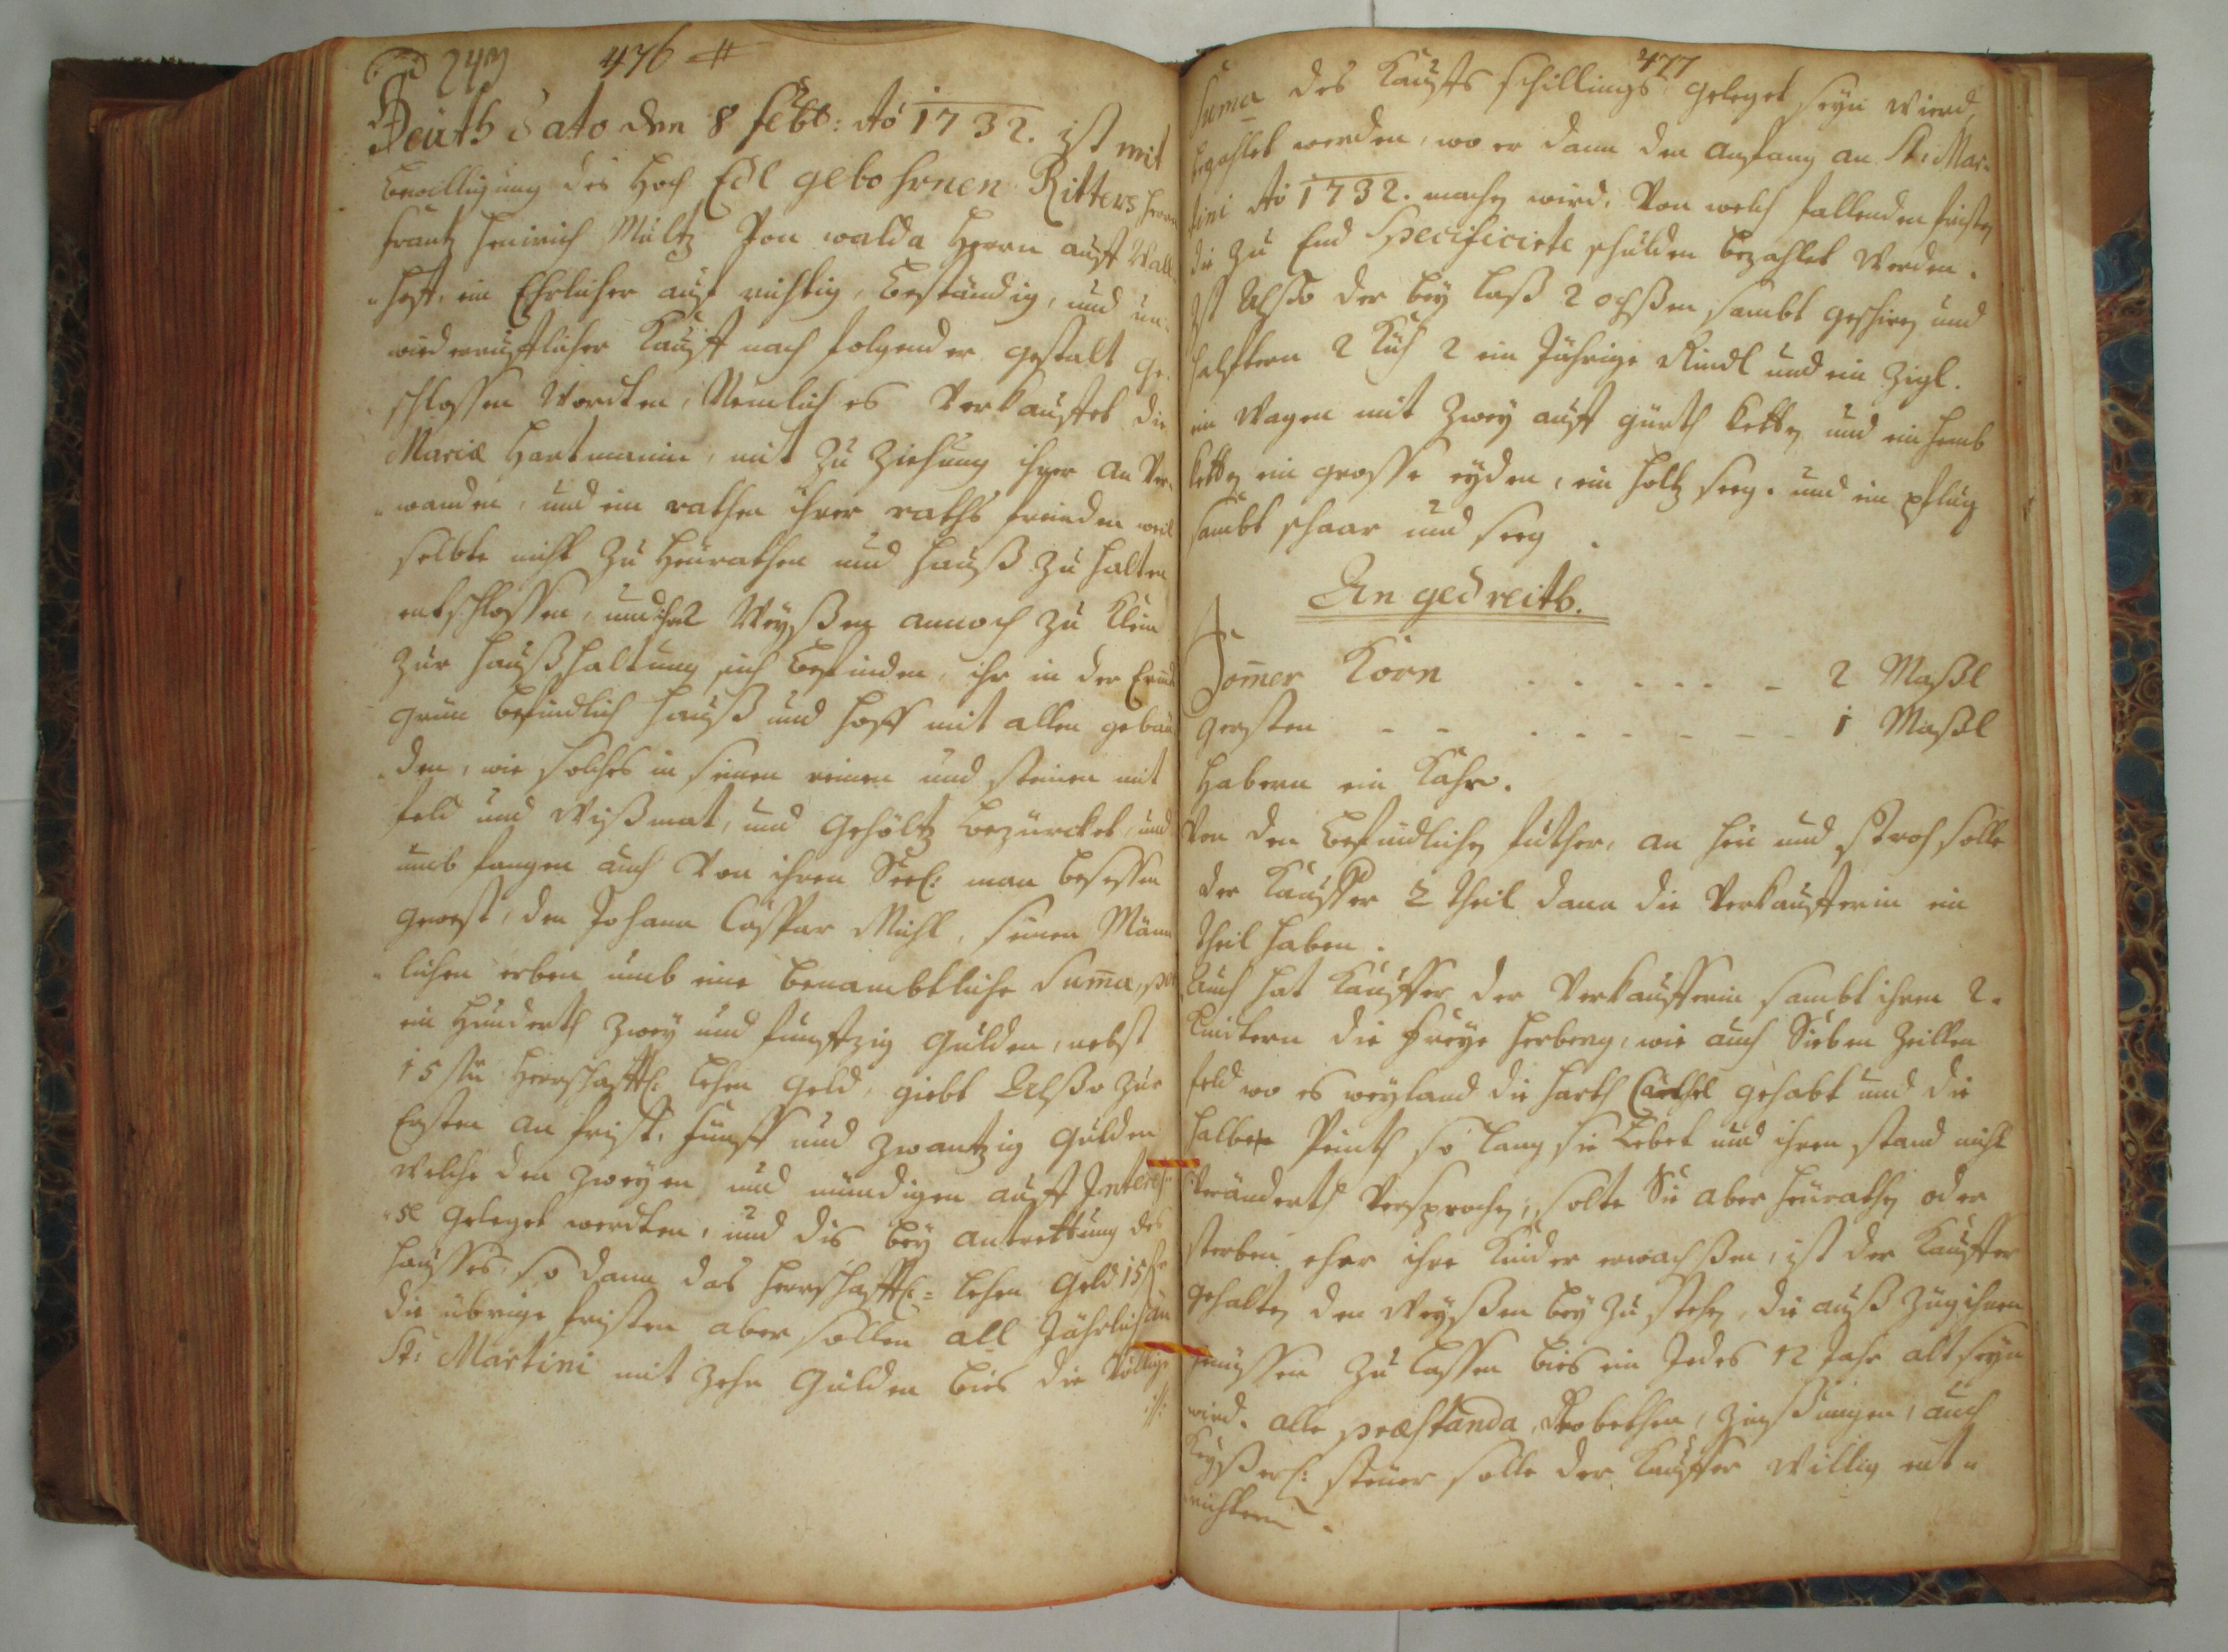 243 476 #
Heuth Dato den 8 Feb: Aõ 1732. ist mit
bewilligung des Hoch Edl gebohrnen Ritters herrn
Frantz Heinrich Mültz Von Walda Herrn auff Wall-
hoff, ein Ehrlicher auf richtig, beständig, und un-
wiederrufflicher Kauff nach folgender gestalt ge-
schlossen Wordten, Nemlich es Verkauffet die
Maria Hartmanin, mit zu Ziehung ihrer an Ver-
wanden, und ein rathen ihrer raths freinden weil
selbte nicht zu Heurathen und Hauß zu halten
entschlossen, und Weyßen annoch zu Klein
zur Haußhaltung sich befinden, ihr in der
grün befindlich Hauß und Hoff mit allen gebäu-
den, wie solches in seinen reinen und steinen mit
feld und Wißmat, und Gehöltz bezürcket, und
umb fangen auch Von ihren Seel: man besessen
gewest, den Johann Caspar Michl, seinen Männ-
lichen erben umb eine benambtliche Suma, per
ein Hunderth zwey und funffzig Gulden, nebst
15 fl Herrschafftl: Lehen Geld, giebt Alßo zur
Ersten an frist, fünff und zwantzig Gulden
Welche den zweyen und mündigen auff Interes-
se geleget werdten, und dis bey antrettung des
Haußes, so dann das Herrschafftl: Lehen Geld 15 fl
die übrige fristen aber sollen all Jährlich an
St: Martini mit zehn Gulden bies die Völlige
://:
477
Suma des Kauffs schillings geleget seyn wierd,
bezahlet werden, wo er dann den anfang an St: Mar-
tini Aõ 1732. machen wird, Von welch fallenden fristen
die zu End Specificirte schulden bezahlet Werden.
Ist Alßo der bey laß 2 ochßen sambt geschier und
halfftern 2 Küh 2 ein Jährige Rindl und ein Zigl.
ein Wagen mit zwey auff gürth ketten und ein hemb
ketten ein grosse eyden, ein holtz seeg. und ein pflug
sambt schaar und seeg.
An gedreith.
Somer Korn - - - - - - 2 Maßl
Gersten - - - - - - - - 1 Maßl
Habern ein Kahr.
Von den befindlichen futher, an heu und stroh solle
der Kauffer 2 theil dann die Verkaufferin ein
theil haben.
Auch hat Kauffer der Verkaufferin sambt ihren 2.
Kindern die freye herberg, wie auch Sieben Zeillen
feld wo es weyland die gehabt und die
halbe Peinth so lang sie Lebet und ihren stand nicht
Veränderth Versprochen, solte Sie aber heurathen oder
sterben eher ihre Kinder erwachßen, ist der Kauffer
gehalten den Weyßen bey zu stehen, die auß zug ihnen
genießen zu lassen bies ein Jedes 12 Jahr alt seyn
wird. alle præstanda, Robethen, Zinßungen, auch
Keyßerl: steuer solle der Kauffer Willig ent-
richten.